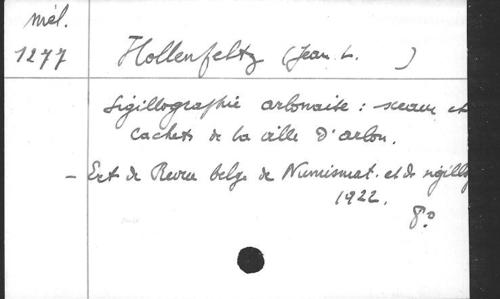 Mél.
1277
Hollenfeltz (Jean L. )
Sigillographie arlonaise : sceaux et
cachets de la ville d'Arlon.
- Ext de Revue belge de Numismat. et de sigillo
1922.
8º